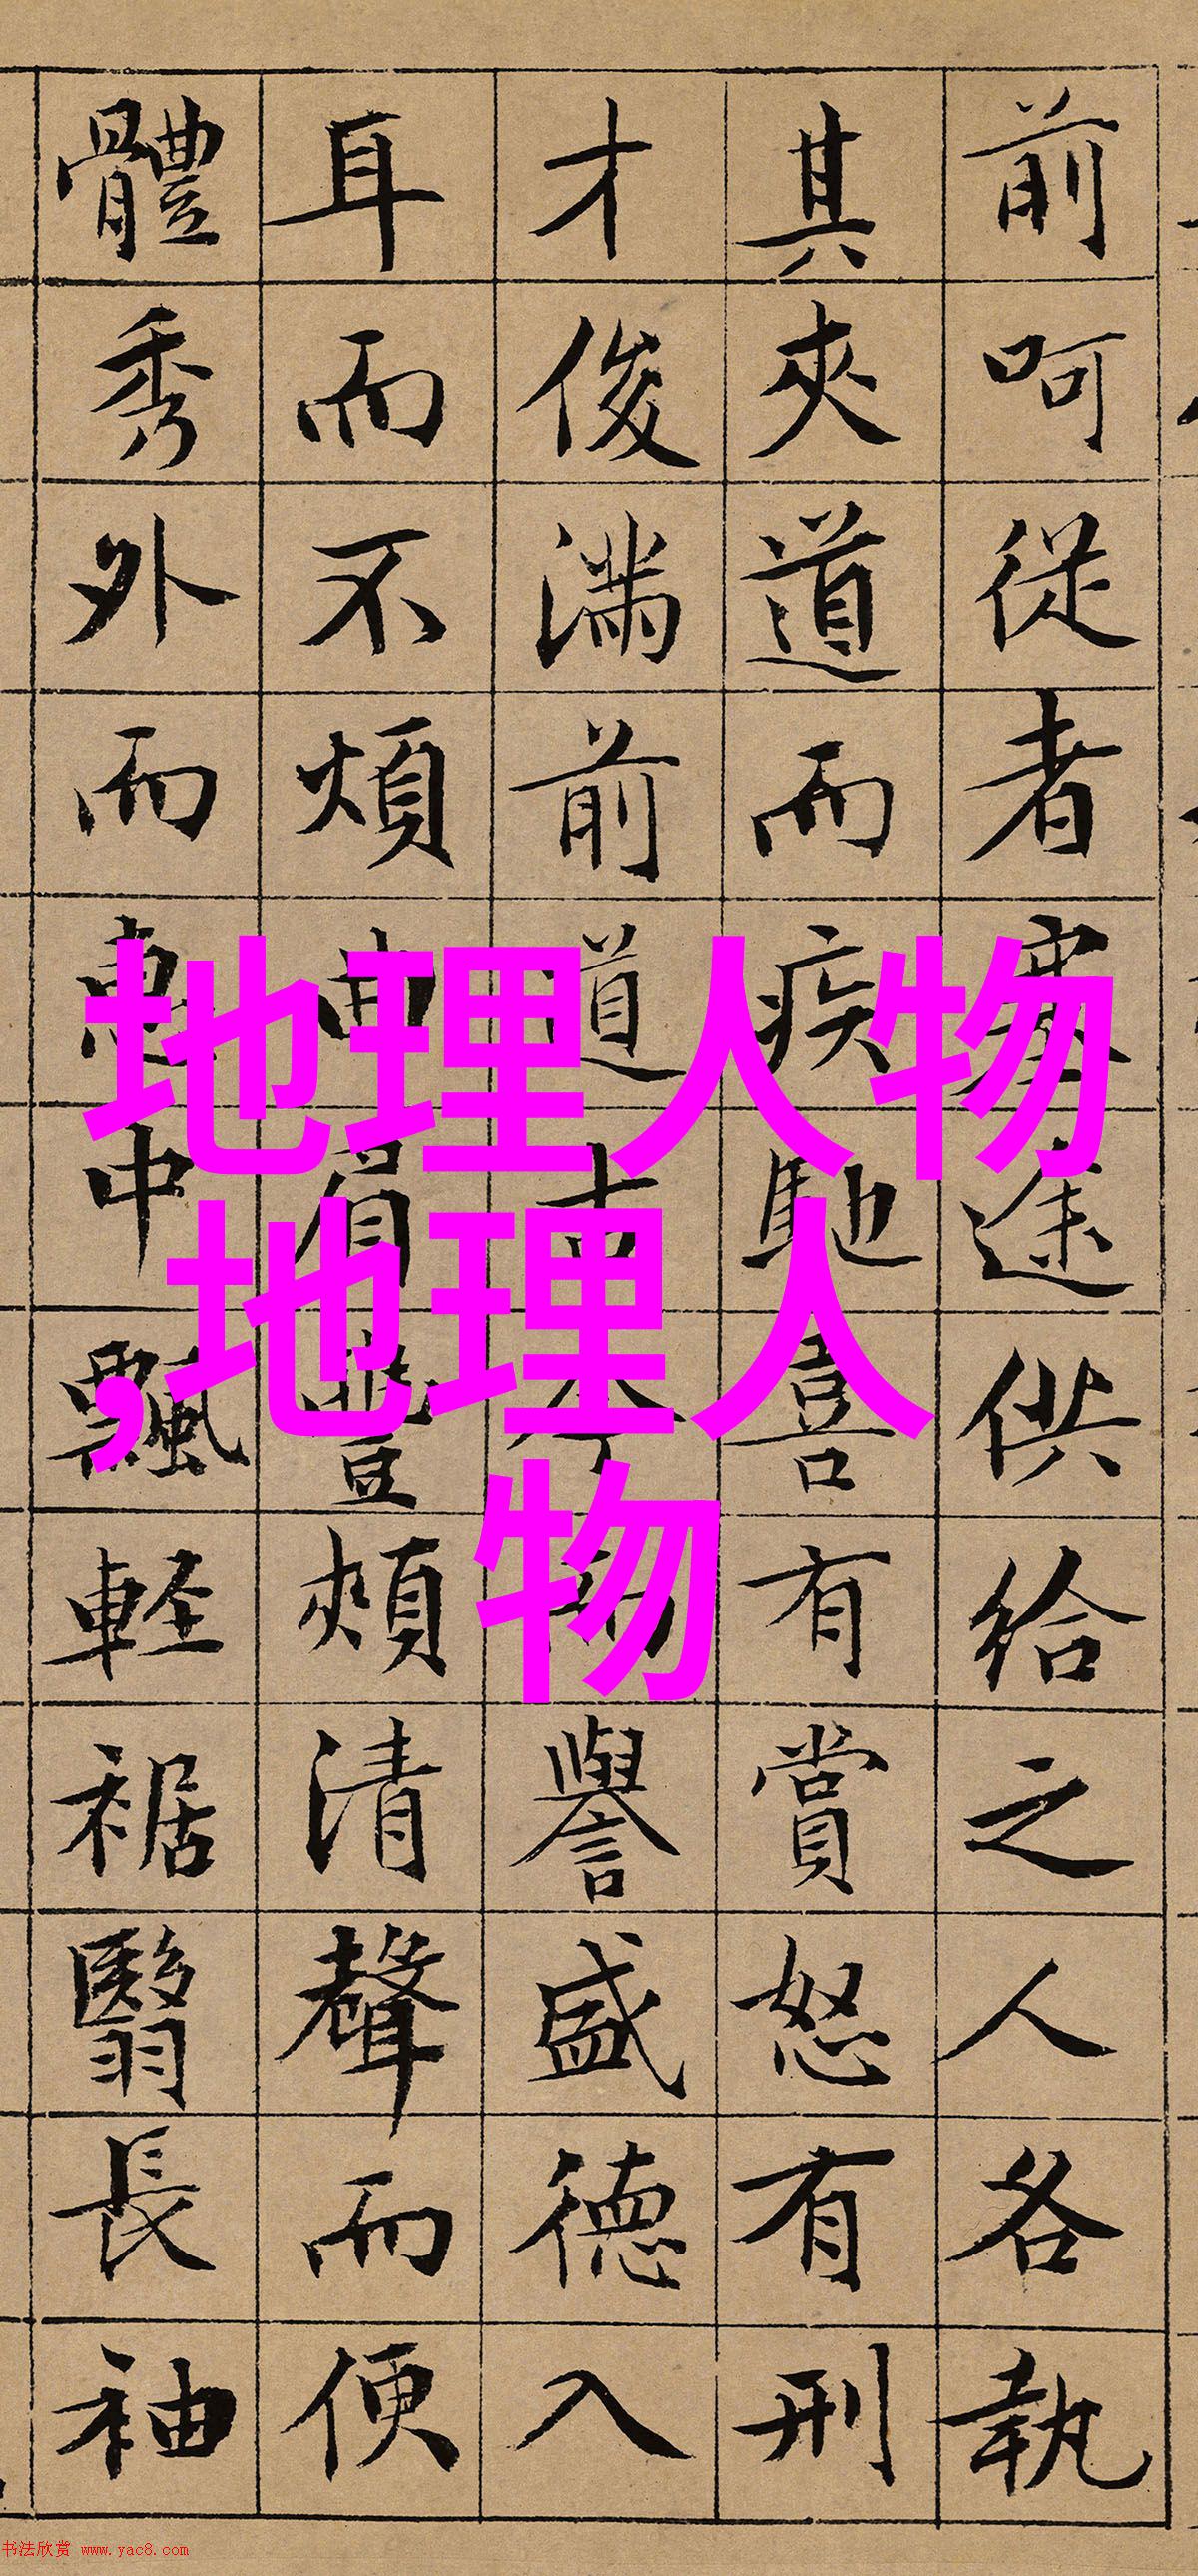 前呵從者塞途供給之人各執
其夾道而疾馳喜有賞怒有刑
才俊滿前道古今而譽盛德入
耳而不煩曲眉豐頰清聲而便
體秀外而惠中飄輕裾翳長袖
地理人物
,地理人
物
书法欣赏 www.yac8.com